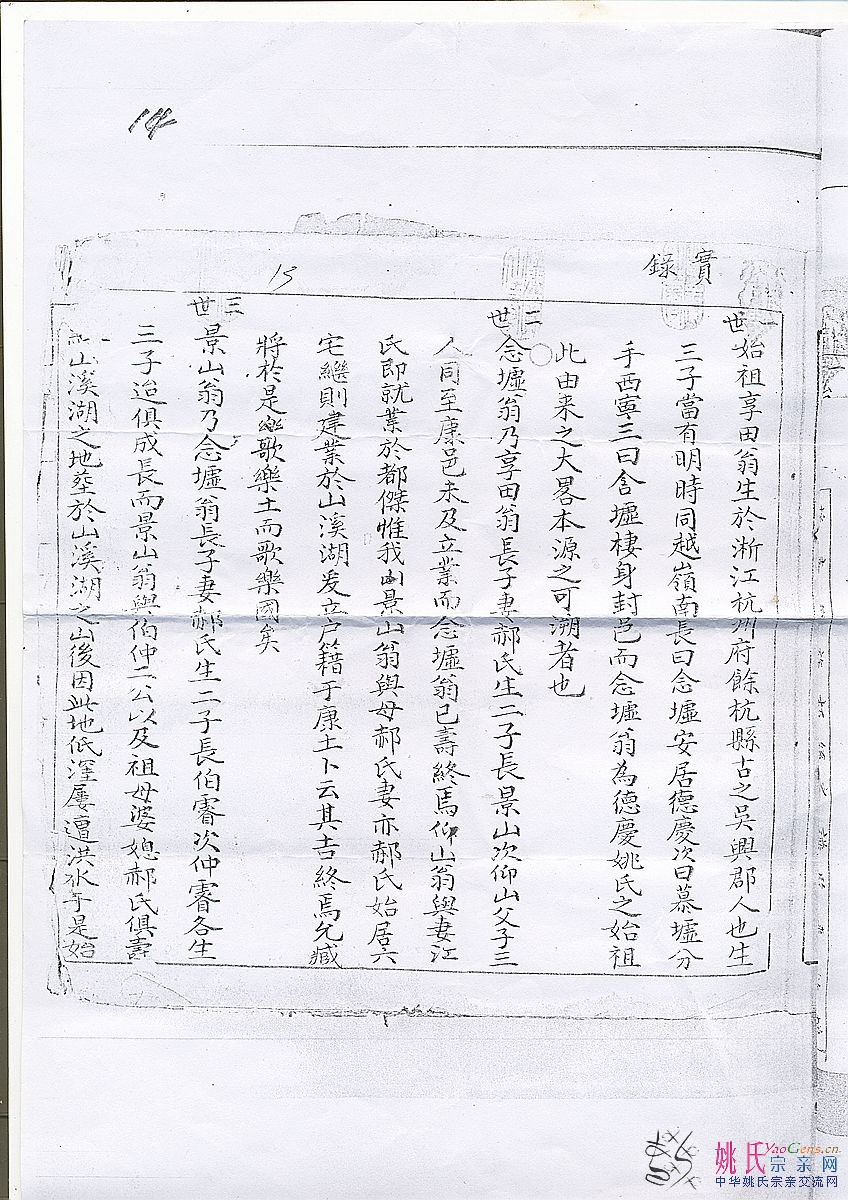 14
15
實錄
一世
始祖享田翁生於淅江杭州府餘杭縣古之吳興郡人也生
三子當有明時同越嶺南長曰念墟安居德慶次曰慕墟分
手西寧三曰含墟棲身封邑而念墟翁為德慶姚氏之始祖
此由来之大畧本源之可溯者也
二世
念墟翁乃享田翁長子妻郝氏生二子長景山次仰山父子三
人同至康邑未及立業而念墟翁已壽終焉仰山翁與妻江
氏即就業於都傑惟我景山翁與母郝氏妻亦郝氏始居六
宅繼則建業於山溪湖爰立户籍于康土卜云其吉終焉允臧
將於是歌樂土而歌樂國矣
三世
景山翁乃念墟翁長子妻郝氏生二子長伯睿次仲睿各生
三子迨俱成長而景山翁與伯仲二公以及祖母婆媳郝氏俱壽
山溪湖之地塟於山溪湖之山後因此地低漥屢遭洪水于是始
姚氏YaoGens.cn
宗亲网
中华姚氏宗亲交流网